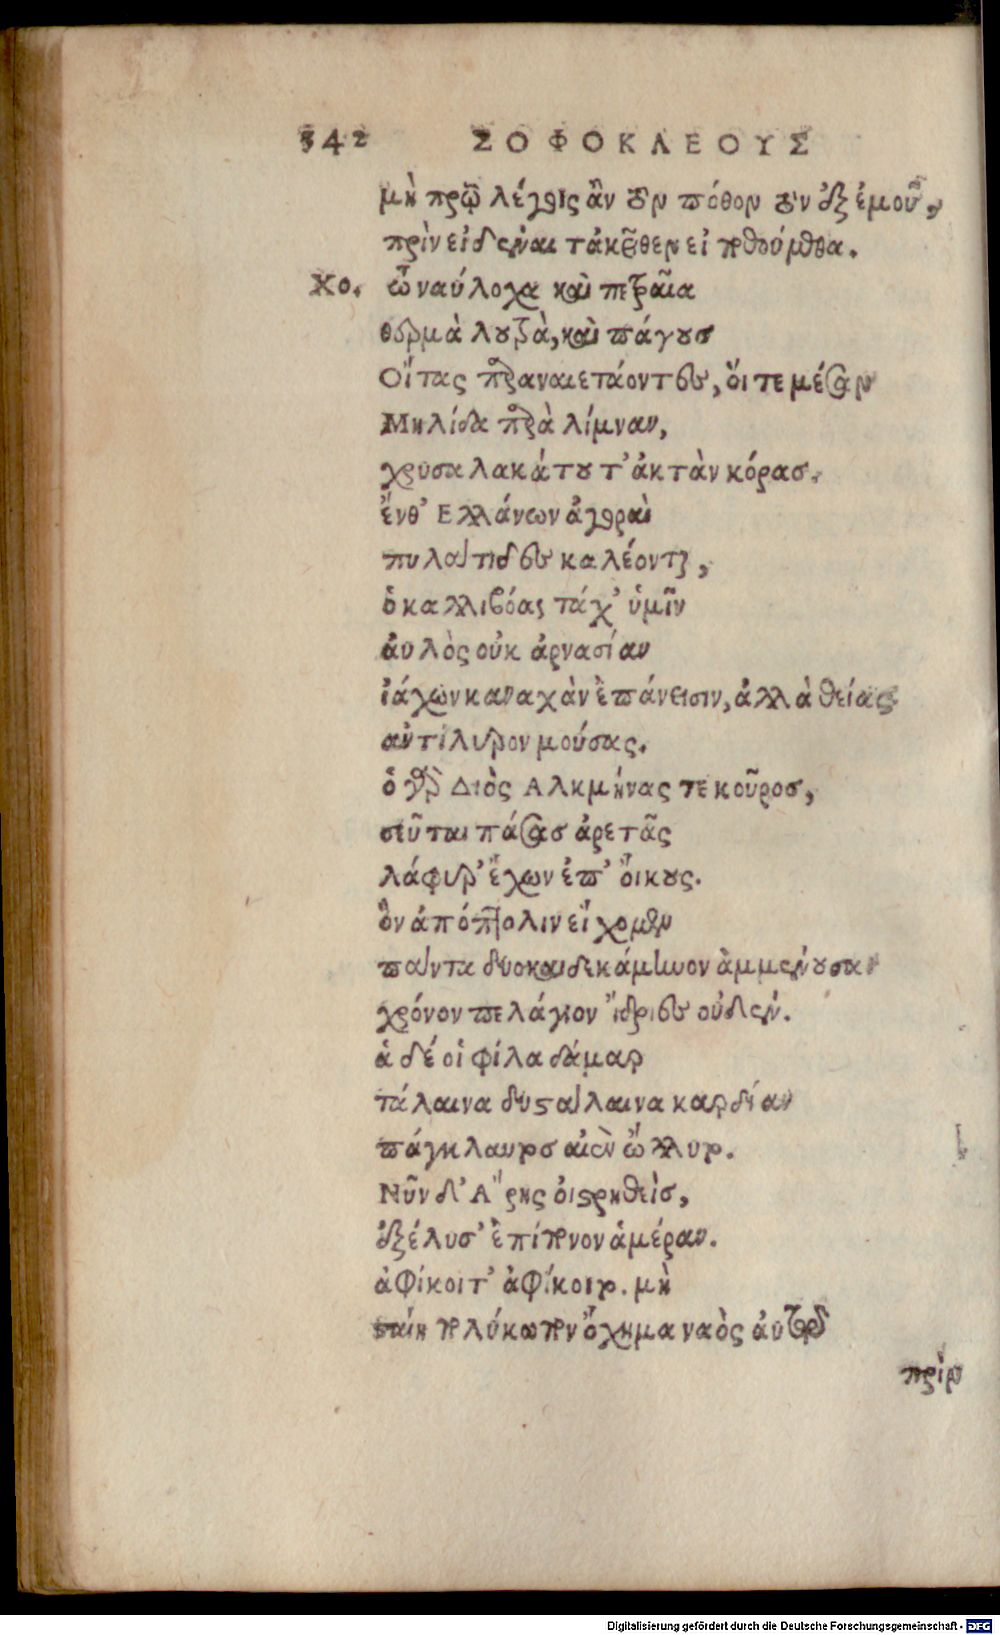 342 ΣΟΦΟΚΛΕΟΥΣ
μὴ πρῶ λέγεις ἂν τὸν πόθον τὸν ἐξ ἐμοῦ,
πρὶν εἰδέναι τἀκεῖθεν εἰ ποθούμεθα.
Χο. ὦ ναύλοχα καὶ πετραῖα
θερμὰ λουτρὰ, καὶ πάγουσ
Οἴτας παραναιετάοντες, ὅι τε μέσαν
Μηλίδα παρὰ λίμναν,
χρυσαλακάτου τ' ἀκτὰν κόρασ.
ἔνθ' Ελλάνων ἀγοραὶ
πυλάτιδες καλέονται,
ὁ καλλιβόας τάχ' ὑμῖν
ἀυλὸς οὐκ ἀρνασίαν
ἰάχων καναχὰν ἐπάνεισιν, ἀλλὰ θείας
ἀντίλυρον μούσας.
ὁ γὰρ Διὸς Αλκμήνας τε κοῦροσ,
σεῦται πάσασ ἀρετᾶς
λάφυρ' ἔχων ἐπ' ὄικους.
ὃν ἀπόπτολιν εἴχομεν
πάντα δυοκαιδεκάμηνον ἀμμένουσαι
χρόνον πελάγιον ἴδριες οὐδέν.
ἁ δέ οἱ φίλα δάμαρ
τάλαινα δυστάλαινα καρδίαν
πάγκλαυτοσ αἰὲν ὤλλυτο.
Νῦν δ' Ἄρης οἰστρηθεὶσ,
ἐξέλυσ' ἐπίπονον ἁμέραν.
ἀφίκοιτ' ἀφίκοιτο. μὴ
σταίη πολύκωπον ὄχημα ναὸς ἀυτῶ
πρὶν
Digitalisierung gefördert durch die Deutsche Forschungsgemeinschaft - DFG